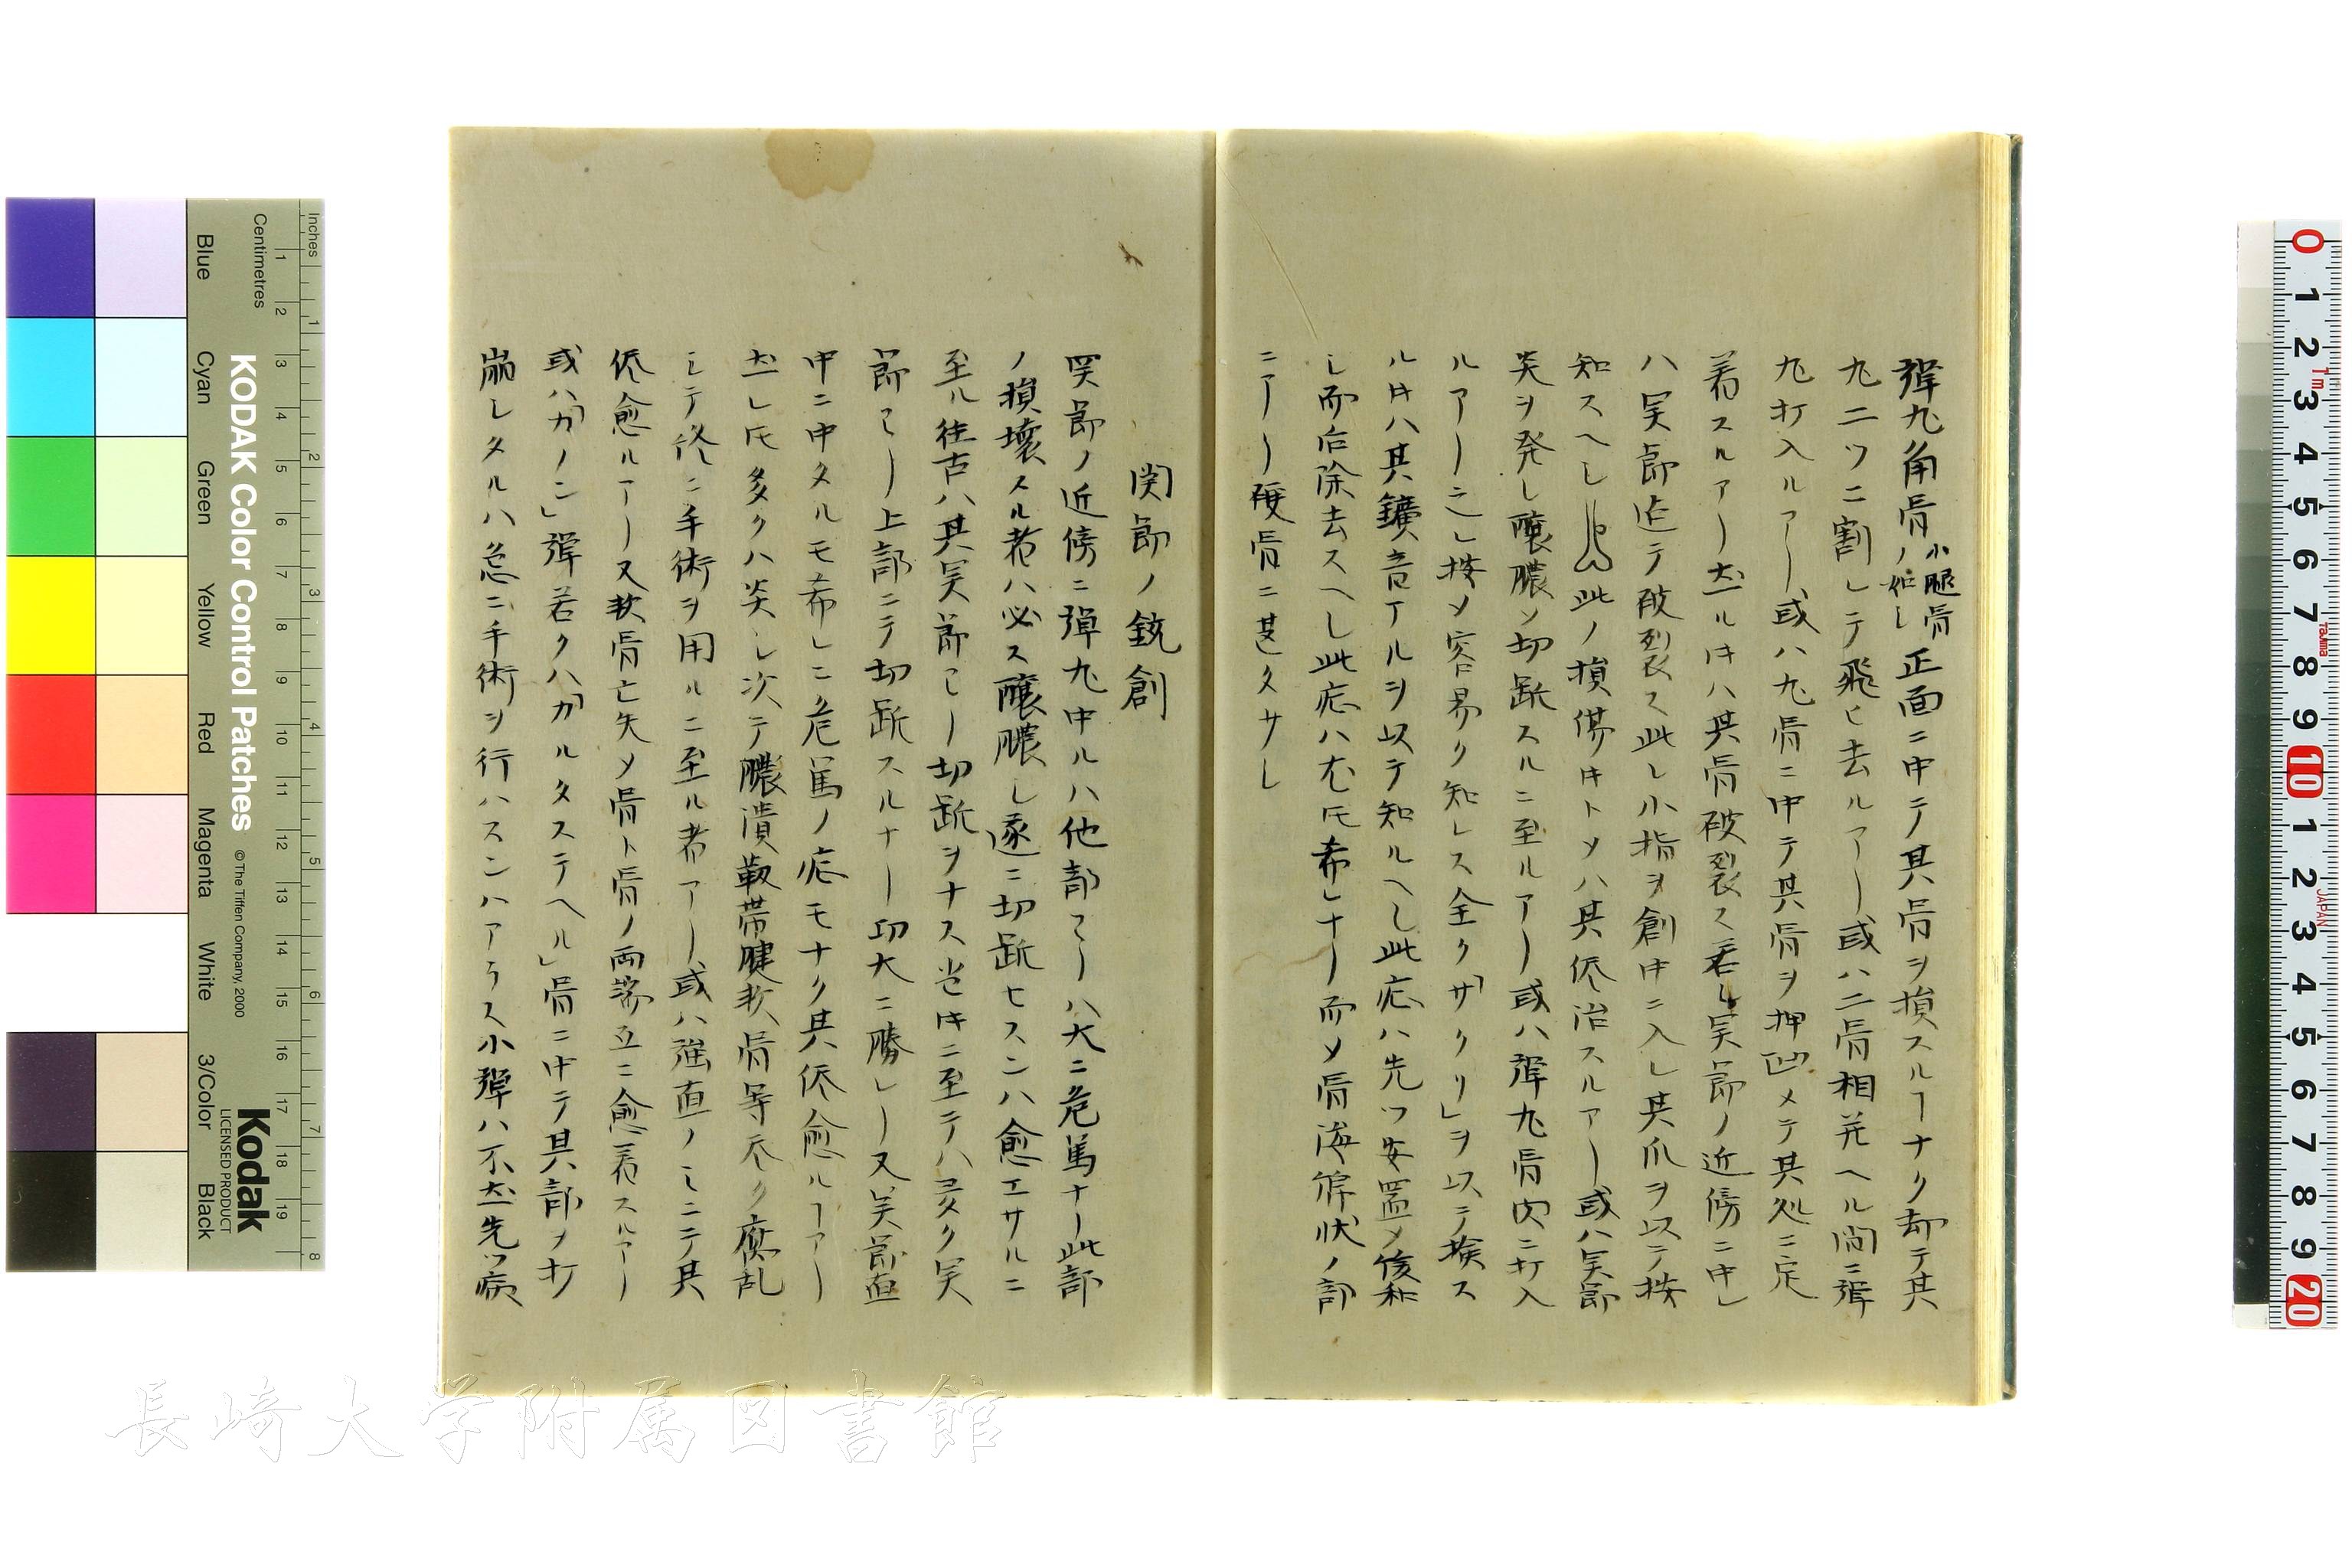 弾丸角骨ノ小腿骨如し正面ニ中テ其骨ヲ損スルヿナク却テ其
丸二ツニ割レテ飛ヒ去ルアリ或ハ二骨相并ヘル間ニ弾
丸打入ルアリ或ハ丸骨ニ中テ其骨ヲ押凹メテ其処ニ定
着スルアリ然ル𪜈ハ其骨破裂ス若し関節ノ近傍ニ中レ
ハ関節迄テ破裂ス此レ小指ヲ創中ニ入レ其爪ヲ以テ按
知スヘし此ノ損傷𪜈トメハ其侭治スルアリ或ハ関節
炎ヲ発し醸膿メ切断スルニ至ルアリ或ハ弾丸骨内ニ打入
ルアリ之レ按メ容易ク知レス全ク「サクリ」ヲ以テ検ス
ル𪜈ハ其鑛音アルヲ以テ知ルヘし此症ハ先ツ安置メ後和
し而后除去スヘし此症ハ尤𪜈希レナリ而メ骨海綿状ノ部
ニアリ硬骨ニ甚タサし
関節ノ銃創
関節ノ近傍ニ弾丸中ルハ他部ヨリハ大ニ危篤ナリ此部
ノ損壊スル者ハ必ス醸膿し遂ニ切断セスンハ愈エサルニ
至ル往古ハ其関節ヨリ切断ヲナス当時ニ至テハ多ク関
節ヨリ上部ニテ切断スルナリ功大ニ勝レリ又関節直
中ニ中タルモ希レニク危篤ノ症モナク其侭愈ルヿアリ
然レ𪜈多クハ炎し次テ膿潰靱帯腱軟骨等尽ク腐乱
しテ終ニ手術ヲ用ルニ至ル者アリ或ハ強直ノミニテ其
侭愈ルアリ又軟骨亡失メ骨ト骨ノ両端互ニ愈着スルアリ
或ハ「カノン」弾若クハ「カルタステヘル」骨ニ中テ其部ヲ打
崩レタルハ急ニ手術ヲ行ハスンハアラス小弾ハ不然先ツ病
KODAK Color Control Patches
© The Tiffen Company, 2000
Kodak
LICENSED PRODUCT
Inches
Centimetres
Blue
Cyan
Green
Yellow
Red
Magenta
White
3/Color
Black
長崎大学附属図書館